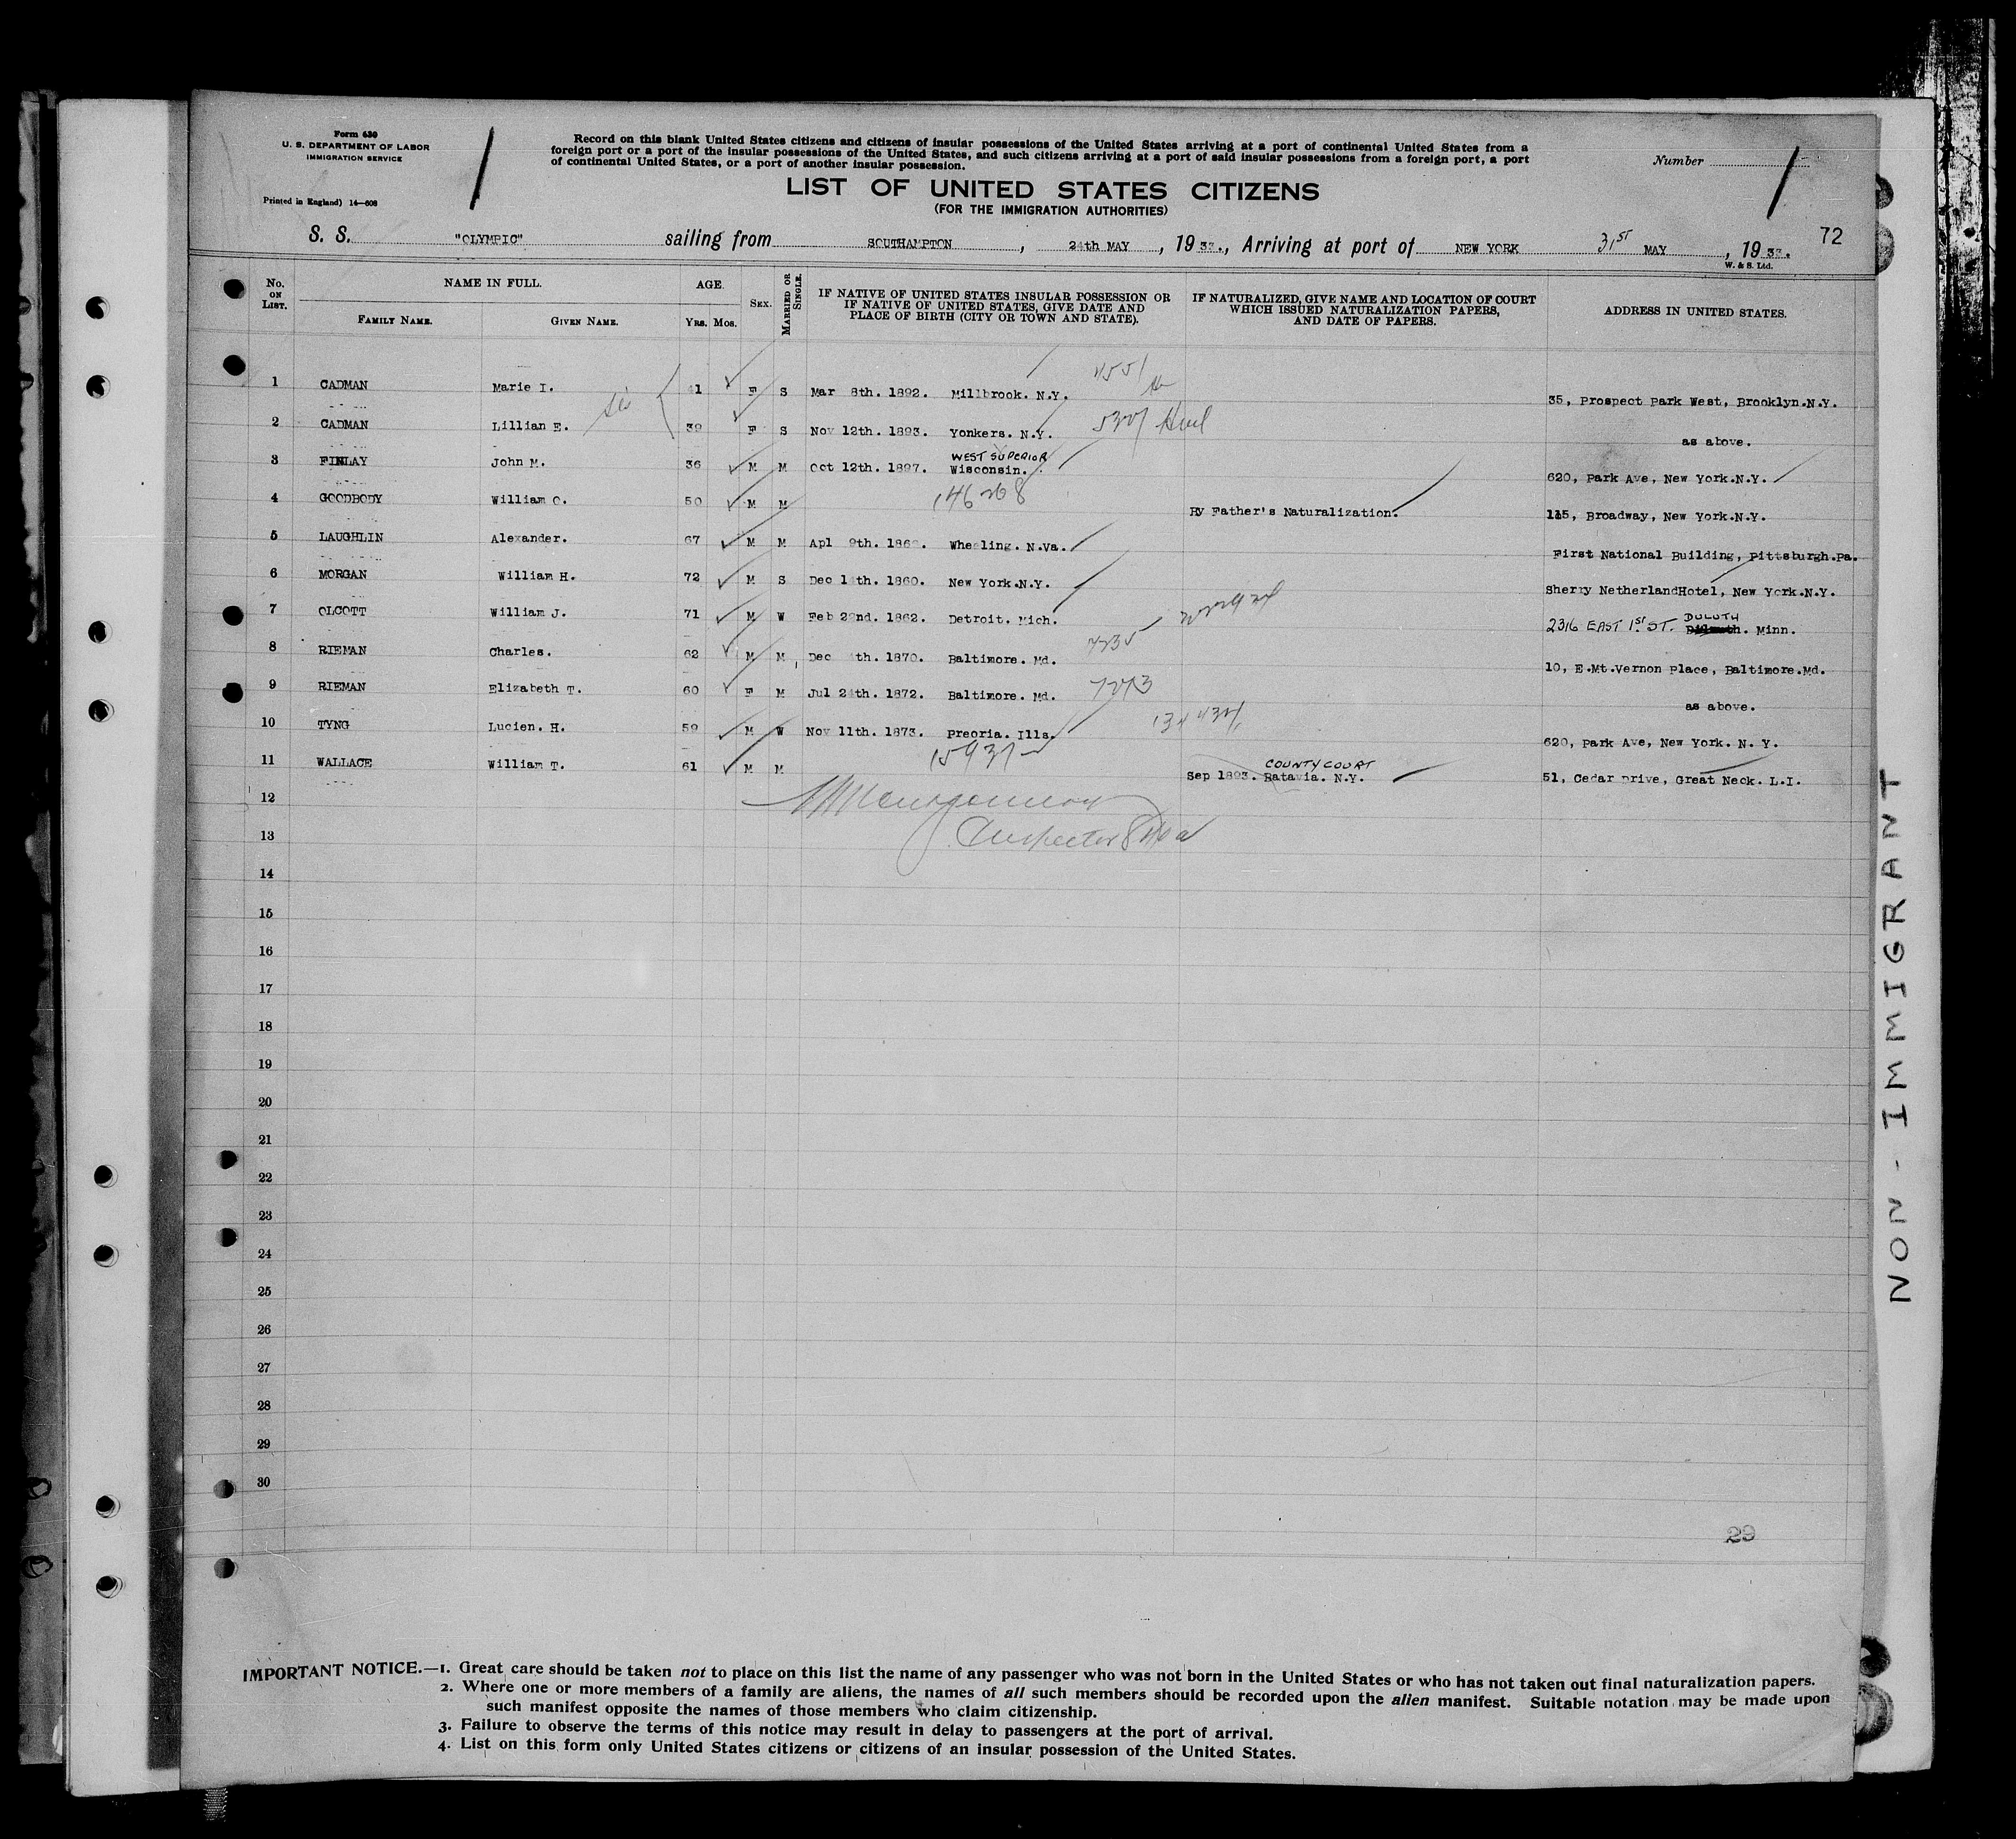 Form 630
U. S. DEPARTMENT OF LABOR
IMMIGRATION SERVICE
Printed in England) 14—608
Record on this blank United States citizens and citizens of insular possessions of the United States arriving at a port of continental United States from a
foreign port or a port of the insular possessions of the United States, and such citizens arriving at a port of said insular possessions from a foreign port, a port
of continental United States, or a port of another insular possession.
Number
LIST OF UNITED STATES CITIZENS
(FOR THE IMMIGRATION AUTHORITIES)
S. S. "OLYMPIC" sailing from SOUTHAMPTON, 24th MAY, 1933., Arriving at port of NEW YORK 31ST MAY, 1933.
72
W. & S. Ltd.
No. ON LIST. NAME IN FULL. FAMILY NAME. GIVEN NAME. AGE. YRS. MOS. SEX. MARRIED OR SINGLE. IF NATIVE OF UNITED STATES INSULAR POSSESSION OR IF NATIVE OF UNITED STATES, GIVE DATE AND PLACE OF BIRTH (CITY OR TOWN AND STATE). IF NATURALIZED, GIVE NAME AND LOCATION OF COURT WHICH ISSUED NATURALIZATION PAPERS, AND DATE OF PAPERS. ADDRESS IN UNITED STATES.
1 CADMAN Marie I. 41 F S Mar 8th. 1892. Millbrook. N.Y. 35, Prospect Park West, Brooklyn.N.Y.
2 CADMAN Lillian E. 39 F S Nov 12th. 1893. Yonkers. N.Y. as above.
3 FINLAY John M. 36 M M Oct 12th. 1897. WEST SUPERIOR Wisconsin. 620, Park Ave, New York.N.Y.
4 GOODBODY William O. 50 M M 146268 By Father's Naturalization. 115, Broadway, New York.N.Y.
5 LAUGHLIN Alexander. 67 M M Apl 9th. 1866. Wheeling. N.Va. First National Building, Pittsburgh.Pa.
6 MORGAN William H. 72 M S Dec 14th. 1860. New York.N.Y. Sherry NetherlandHotel, New York.N.Y.
7 OLCOTT William J. 71 M W Feb 22nd. 1862. Detroit. Mich. 2316 EAST 1ST ST. DULUTH Minn.
8 RIEMAN Charles. 62 M M Dec th. 1870. Baltimore. Md. 10, E.Mt.Vernon Place, Baltimore.Md.
9 RIEMAN Elizabeth T. 60 F M Jul 24th. 1872. Baltimore. Md. as above.
10 TYNG Lucien. H. 59 M W Nov 11th. 1873. Preoria. Ills. 620, Park Ave, New York. N. Y.
11 WALLACE William T. 61 M M Sep 1893. COUNTY COURT Batavia. N.Y. 51, Cedar Drive, Great Neck. L.I.
12
13
14
15
16
17
18
19
20
21
22
23
24
25
26
27
28
29
30
29
NON-IMMIGRANT
IMPORTANT NOTICE.—1. Great care should be taken not to place on this list the name of any passenger who was not born in the United States or who has not taken out final naturalization papers.
2. Where one or more members of a family are aliens, the names of all such members should be recorded upon the alien manifest. Suitable notation may be made upon
such manifest opposite the names of those members who claim citizenship.
3. Failure to observe the terms of this notice may result in delay to passengers at the port of arrival.
4. List on this form only United States citizens or citizens of an insular possession of the United States.